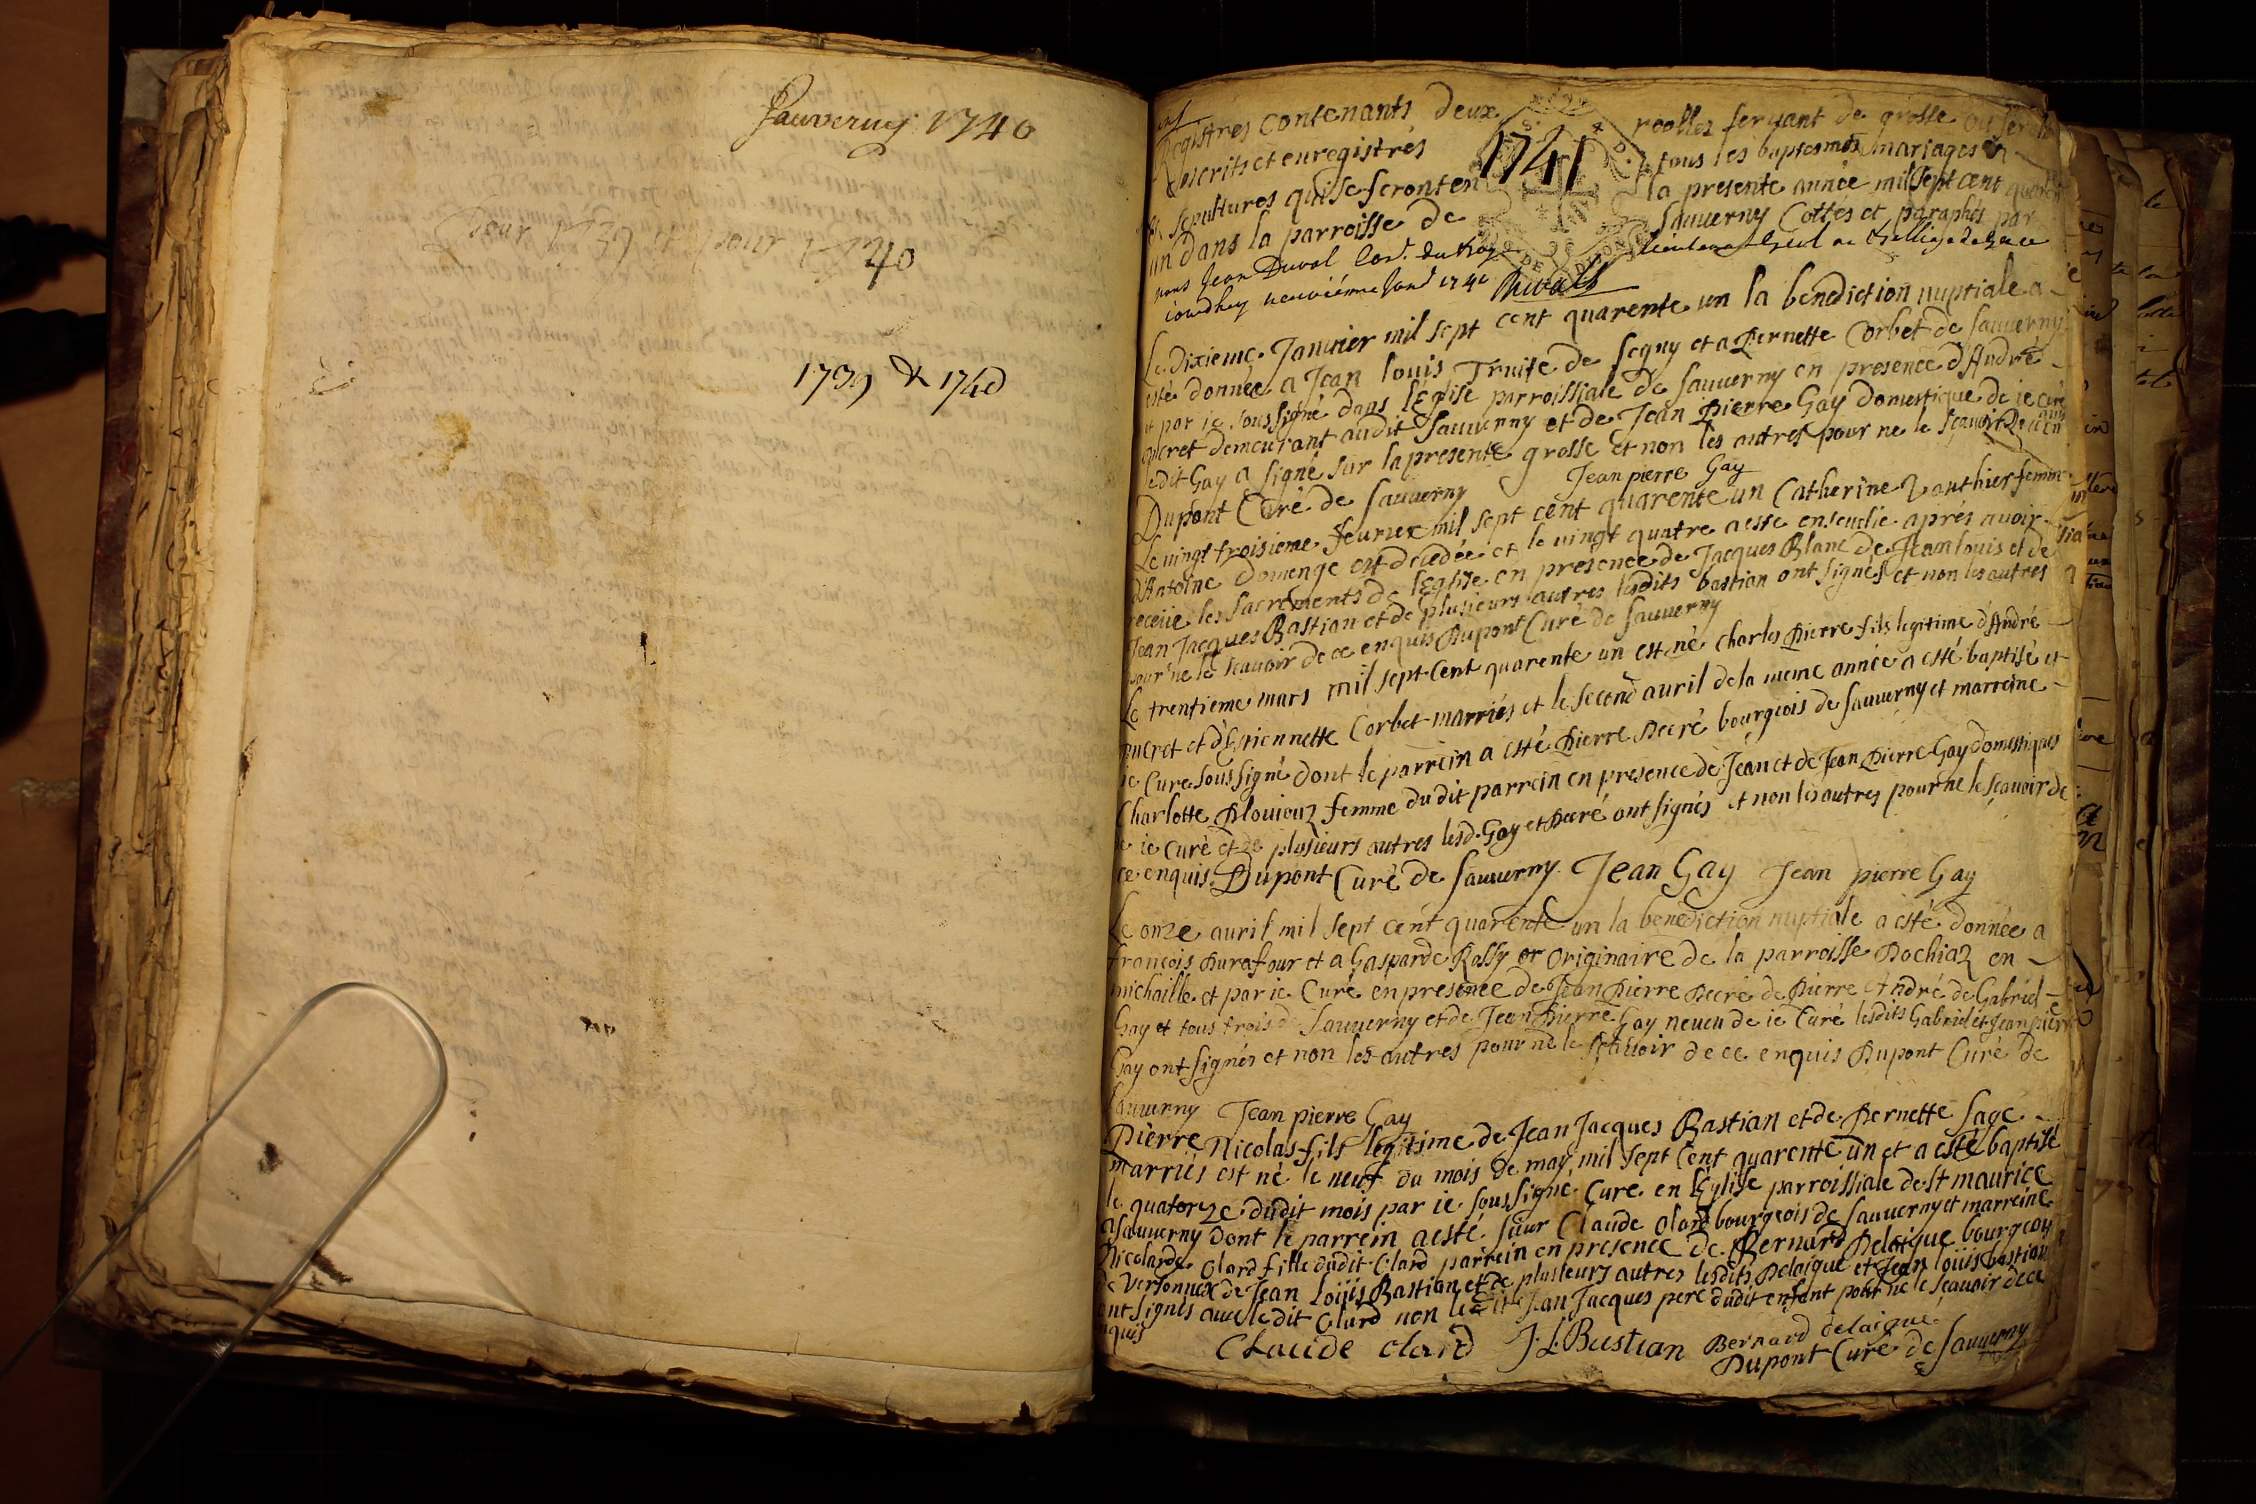 Sauverny 1740
Pour 1739 et pour 1740
1739 & 1740
Registres contenants deux roolles servant de grosse ou seront
inscrits et enregistrés tous les baptesmes mariages et
sepultures qui se feront en la presente année mil sept cent quarente
un dans la parroisse de Sauverny Cottés et paraphés par
nous Jean Duval Con.r du Roy Lieutenant
jourdhuy neuviéme Janv.r 1741
1741
Le dixieme Janvier mil sept cent quarente un la benediction nuptiale a
esté donnée a Jean louis Truite de Segny et a Pernette Corbet de Sauverny
et par ie soussigné dans l'Eglise parroissiale de Sauverny en presence d'André
demeurant audit Sauverny et de Jean Pierre Gay Domestique de ie Curé
ledit Gay a signé sur la presente grosse et non les autres pour ne le sçavoir
Dupont Curé de Sauverny Jean pierre Gay
Le vingt troisieme fevrier mil sept cent quarente un Catherine Vauthier femme
d'Antoine Domenge est decedée et le vingt quatre a esté ensevelie apres avoir
receue les Sacrements de l'Eglise en presence de Jacques Blanc de Jean louis et de
Jean Jacques Bastian et de plusieurs autres lesdits bastian ont signés et non les autres
pour ne le sçavoir de ce enquis Dupont Curé de Sauverny
Le trentieme mars mil sept cent quarente un est né Charles Pierre fils legitime d'André
et d'Estiennette Corbet marriés et le second avril de la meme année a esté baptisé et
ie Curé soussigné dont le parrein a esté Pierre Decré bourgeois de Sauverny et marreine
Charlotte femme dudit parrein en presence de Jean et de Jean Pierre Gay domestiques
de ie Curé et de plusieurs autres lesd. Gay et Decré ont signés et non les autres pour ne le sçavoir de
ce enquis Dupont Curé de Sauverny Jean Gay Jean pierre Gay
Le onze avril mil sept cent quarente un la benediction nuptiale a esté donnée a
françois Durafour et a Gasparde Rossy or Originaire de la parroisse Dochiaz en
michaille et par ie Curé en presence de Jean Pierre Decré de Pierre André de Gabriel
Gay et tous trois de Sauverny et de Jean Pierre Gay neveu de ie Curé lesdits Gabriel et Jean pierre
Gay ont signés et non les autres pour ne le sçavoir de ce enquis Dupont Curé de
Sauverny Jean pierre Gay
Pierre Nicolas fils legitime de Jean Jacques Bastian et de Pernette Sage
marriés est né le neuf du mois de may mil sept cent quarente un et a esté baptisé
le quatorze dudit mois par ie soussigné Curé en l'Eglise parroissiale de St maurice
a Sauverny dont le parrein a esté sieur Claude Clard bourgeois de Sauverny et marreine
Nicolarde Clard fille dudit Clard parrein en presence de Bernard Delaigue bourgeois
de Versonnex de Jean Louis Bastian et de plusieurs autres lesdits Delaigue et Jean louis bastian
ont signés avec ledit Clard non ledit Jean Jacques pere dudit enfant pour ne le sçavoir de ce
enquis
Claude Clard J. L. Bastian Bernard delaigue
Dupont Curé de Sauverny